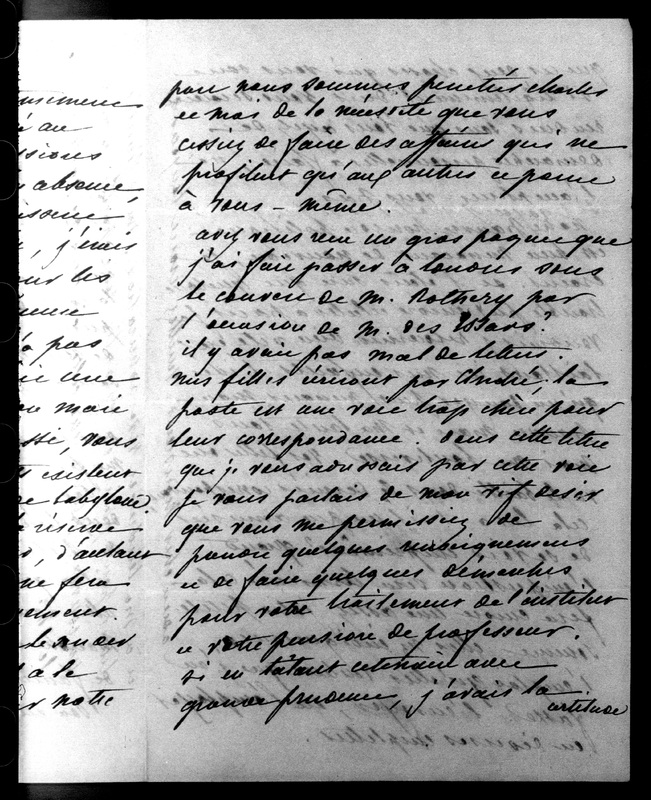 usement
é au
ssions
absence,
j'irais
ur les
pas
une
mari
vous
existent
de labylone
réserve
d'autant
ne fera
nement.
à le
notre
pour nous sommes penetrés charles
et moi de la nécéssité que vous
cessiez de faire des affaires qui ne
profitent qu'aux autres et
à vous-même.
avez vous reçu un gros paquet que
j'ai fait passer à londres sous
le couvert de M. Rothery par
l'occasion de M. des Essars?
il y avait pas mal de lettres.
nos filles écriront par André; la
poste est une voie trop chère pour
leur correspondance. dans cette lettre
que je vous adressais par cette voie
je vous parlais de mon vif desir
que vous me permissiez de
prendre quelques renseignemens
et de faire quelques démarches
pour votre traitement de l'institut
et votre pension de professeur.
si en tâtant le terrain avec
grande prudence, j'avais la
certitude